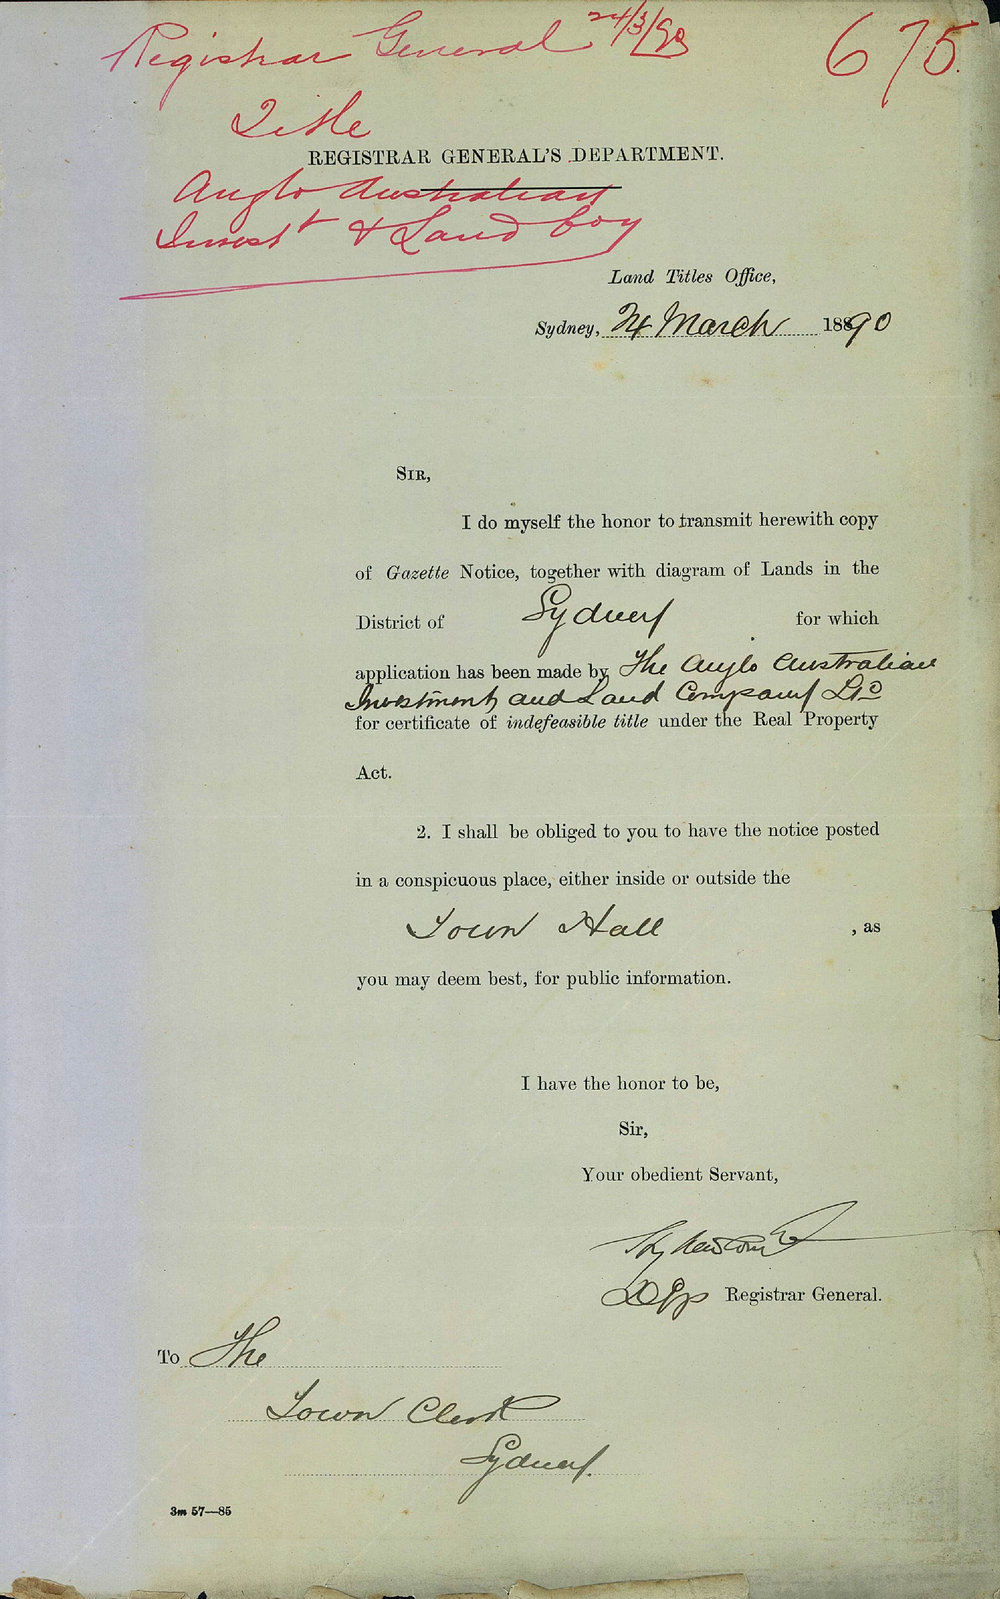 Registrar General 24/3/90
675.
Title
REGISTRAR GENERAL'S DEPARTMENT.
Anglo Australian
Invest t & Land Coy
Land Titles Office,
Sydney, 24 March 1890
SIR,
I do myself the honor to transmit herewith copy
of Gazette Notice, together with diagram of Lands in the
District of Sydney for which
application has been made by The Anglo Australian
Investment and Land Company Ltd
for certificate of indefeasible title under the Real Property
Act.
2. I shall be obliged to you to have the notice posted
in a conspicuous place, either inside or outside the
Town Hall , as
you may deem best, for public information.
I have the honor to be,
Sir,
Your obedient Servant,
Dep Registrar General.
To The
Town Clerk
Sydney.
3m 57—85